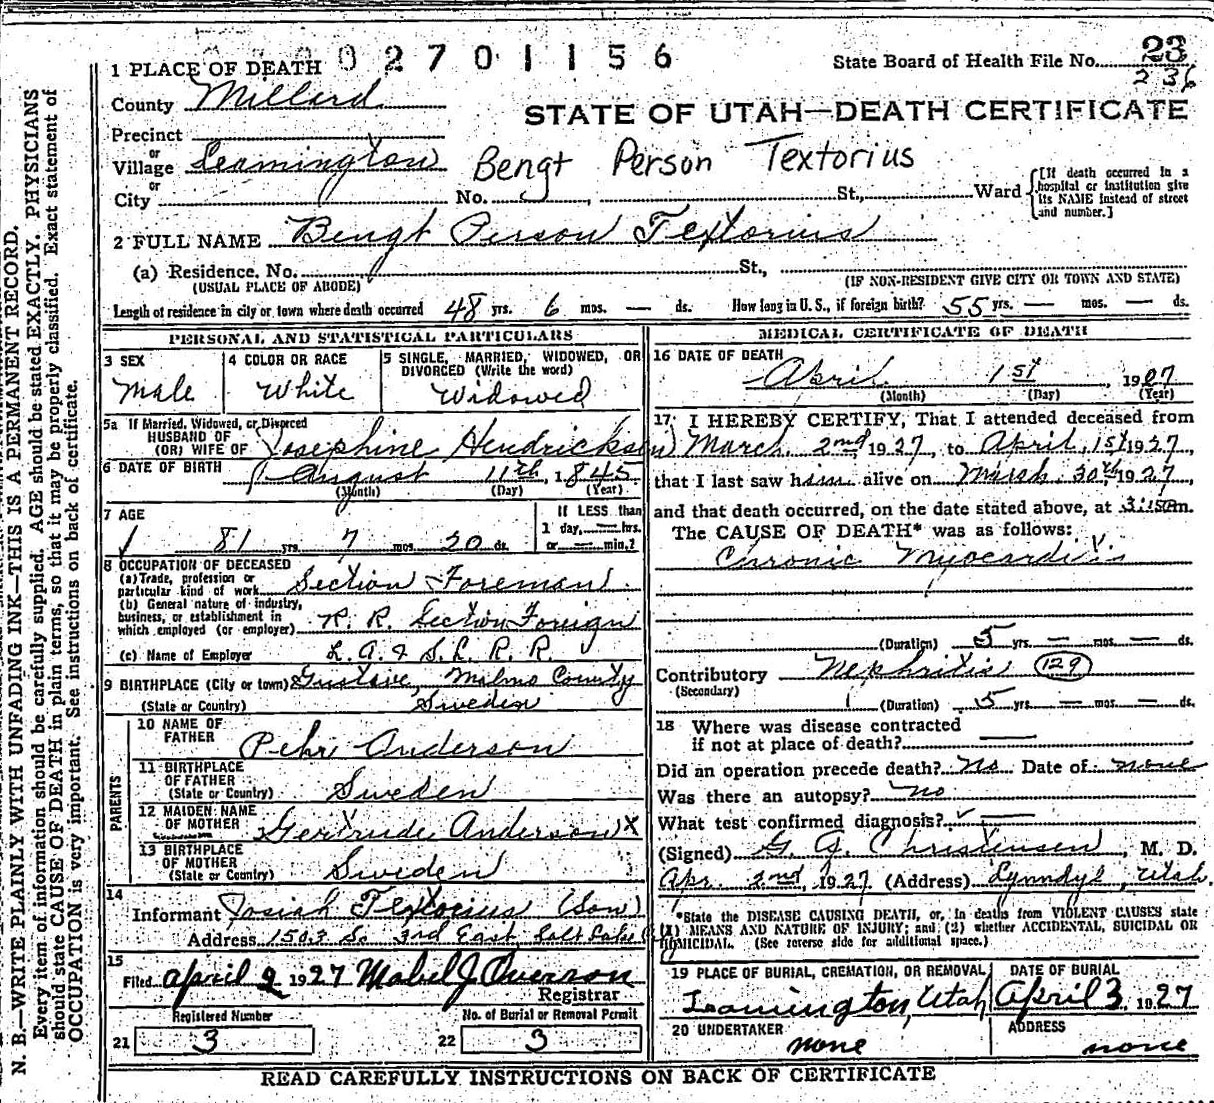 0 2 7 0 1 1 5 6
State Board of Health File No. 23
236
1 PLACE OF DEATH
County Millard
STATE OF UTAH—DEATH CERTIFICATE
Precinct
or
Village Leamington
Bengt Person Textorius
or
City No. St., Ward
[If death occurred in a hospital or institution give its NAME instead of street and number.]
2 FULL NAME Bengt Person Textorius
(a) Residence. No. St.,
(USUAL PLACE OF ABODE) (IF NON-RESIDENT GIVE CITY OR TOWN AND STATE)
Length of residence in city or town where death occurred 48 yrs. 6 mos. — ds. How long in U. S., if foreign birth? 55 yrs. — mos. — ds.
PERSONAL AND STATISTICAL PARTICULARS
3 SEX
Male
4 COLOR OR RACE
White
5 SINGLE, MARRIED, WIDOWED, OR DIVORCED (Write the word)
Widowed
5a If Married, Widowed, or Divorced
HUSBAND OF
(OR) WIFE OF Josephine Hendrickson
6 DATE OF BIRTH August 11th, 1845
(Month) (Day) (Year)
7 AGE
81 yrs. 7 mos. 20 ds.
If LESS than
1 day, — hrs.
or — min.?
8 OCCUPATION OF DECEASED
(a) Trade, profession or
particular kind of work Section Foreman
(b) General nature of industry,
business, or establishment in
which employed (or employer) R. R. Section Foreign
(c) Name of Employer L. A. & S. L. R. R.
9 BIRTHPLACE (City or town) Gustave, Malmo County
(State or Country) Sweden
PARENTS
10 NAME OF
FATHER Pehr Anderson
11 BIRTHPLACE
OF FATHER
(State or Country) Sweden
12 MAIDEN NAME
OF MOTHER Gertrude Anderson X
13 BIRTHPLACE
OF MOTHER
(State or Country) Sweden
14
Informant Josiah Textorius (Son)
Address 1503 So 3rd East Salt Lake
15
Filed April 2 1927 Mabel J. Overson
Registrar
Registered Number
21 3
No. of Burial or Removal Permit
22 3
MEDICAL CERTIFICATE OF DEATH
16 DATE OF DEATH
April 1st, 1927
(Month) (Day) (Year)
17 I HEREBY CERTIFY, That I attended deceased from
March 2nd 1927, to April, 1st 1927,
that I last saw him alive on March 30th 1927,
and that death occurred, on the date stated above, at 3:15am.
The CAUSE OF DEATH* was as follows:
Chronic Myocarditis
(Duration) 5 yrs. — mos. — ds.
Contributory Nephritis 129
(Secondary)
(Duration) 5 yrs. — mos. — ds.
18 Where was disease contracted
if not at place of death?
Did an operation precede death? No Date of none
Was there an autopsy? no
What test confirmed diagnosis? —
(Signed) G. G. Christensen, M. D.
Apr. 2nd, 1927 (Address) Lynndyl, Utah.
*State the DISEASE CAUSING DEATH, or, in deaths from VIOLENT CAUSES state
(1) MEANS AND NATURE OF INJURY; and (2) whether ACCIDENTAL, SUICIDAL OR
HOMICIDAL. (See reverse side for additional space.)
19 PLACE OF BURIAL, CREMATION, OR REMOVAL
Leamington, Utah
DATE OF BURIAL
April 3, 1927
20 UNDERTAKER
none
ADDRESS
none
READ CAREFULLY INSTRUCTIONS ON BACK OF CERTIFICATE
N. B.—WRITE PLAINLY WITH UNFADING INK—THIS IS A PERMANENT RECORD.
Every item of information should be carefully supplied. AGE should be stated EXACTLY. PHYSICIANS
should state CAUSE OF DEATH in plain terms, so that it may be properly classified. Exact statement of
OCCUPATION is very important. See instructions on back of certificate.